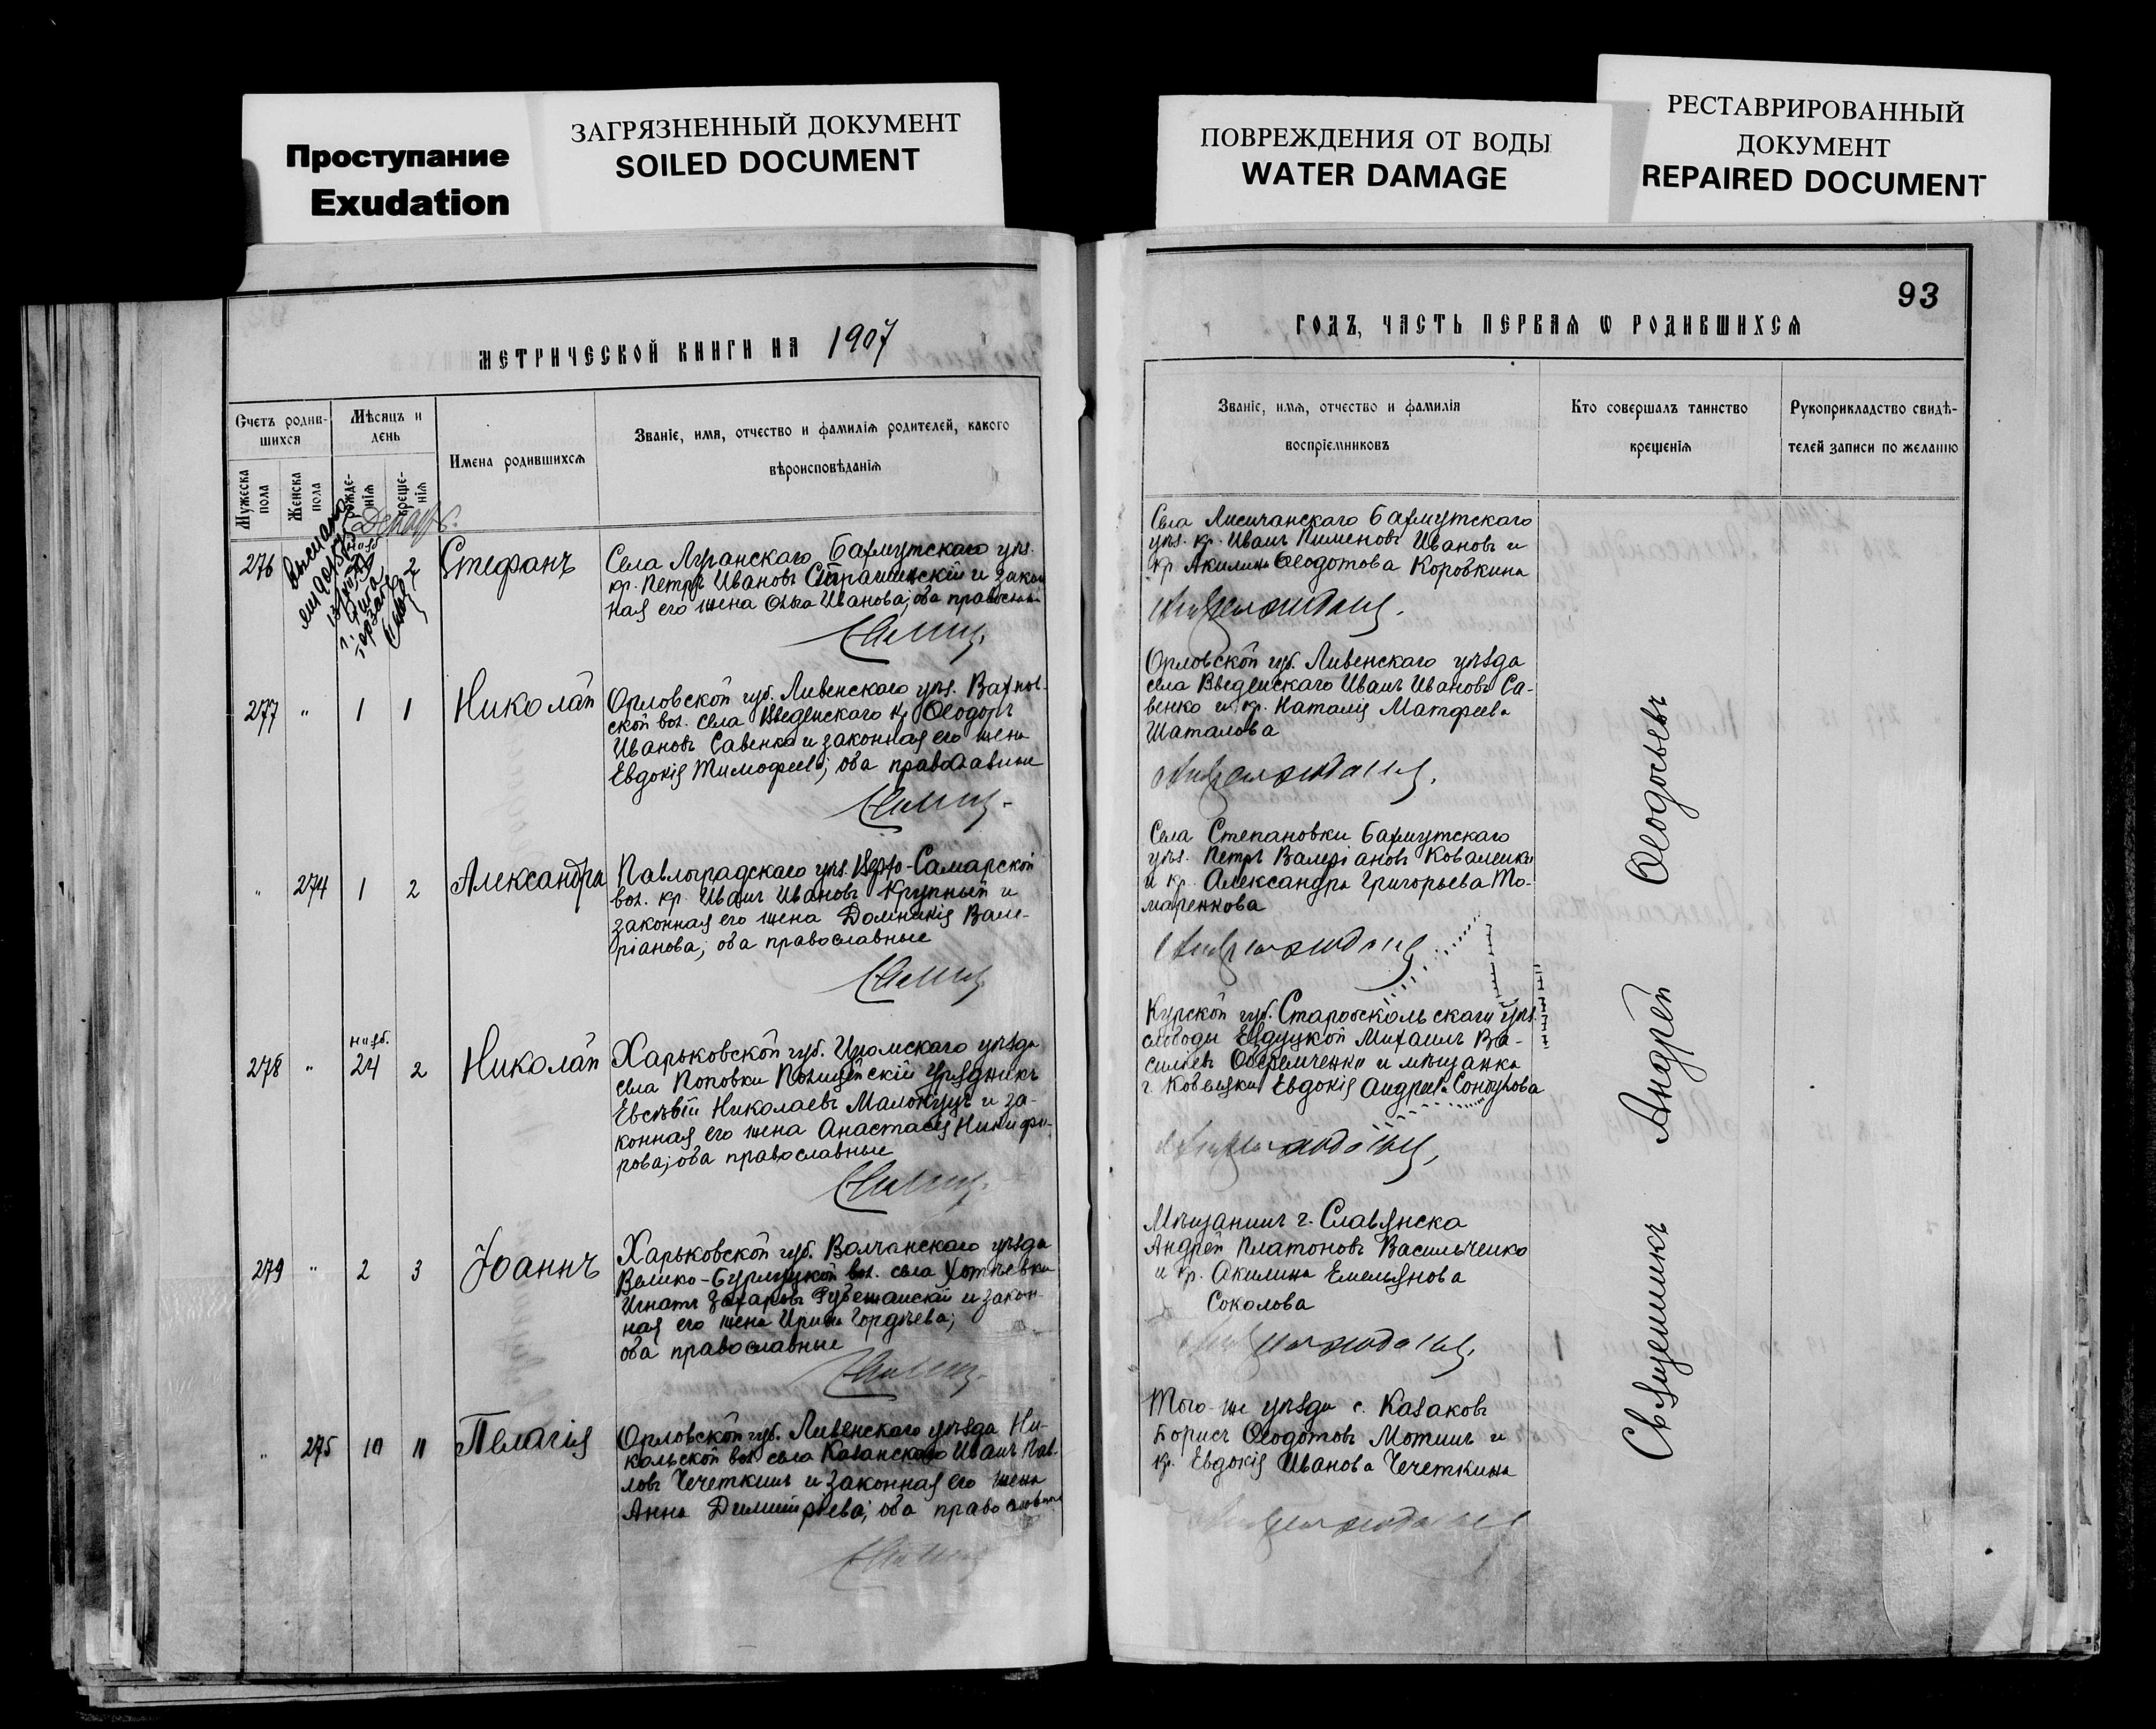 Проступание
Exudation
ЗАГРЯЗНЕННЫЙ ДОКУМЕНТ
SOILED DOCUMENT
ПОВРЕЖДЕНИЯ ОТ ВОДЫ
WATER DAMAGE
РЕСТАВРИРОВАННЫЙ
ДОКУМЕНТ
REPAIRED DOCUMENT
МЕТРИЧЕСКОЙ КНИГИ НА 1907
Счетъ родив-
шихся
Мѣсяцъ и
день
Мужеска
пола
Женска
пола
рожде-
нія
креще-
нія
Имена родившихся
Званіе, имя, отчество и фамилія родителей, какого
вѣроисповѣданія
276
2
Стефанъ
Села Луганскаго Бахмутскаго уѣз.
кр. Петръ Ивановъ Страшинскій и закон
ная его жена Ольга Иванова; оба православн
277 " 1 1 Николай
Орловской губ. Ливенскаго уѣз.
ской вол. села Введенскаго кр Ѳеодоръ
Ивановъ Савенко и законная его жена
Евдокія Тимофеева; оба православные
" 274 1 2 Александра
Павлоградскаго уѣз. -Самарской
вол. кр. Иванъ Ивановъ Крупный и
законная его жена Домникія Вале-
ріанова; оба православные
нояб.
278 " 24 2 Николай
Харьковской губ. Изюмскаго уѣзда
села Поповки Полицейскій урядникъ
Евсевій Николаевъ и за-
конная его жена Анастасія Никифо-
рова; оба православные
279 " 2 3 Іоаннъ
Харьковской губ. Волчанскаго уѣзда
Велико-Бурлуцкой вол. села Хотнѣевки
Игнатъ Захаровъ и закон-
ная его жена Ирина Гордѣева;
оба православные
" 275 10 11 Пелагія
Орловской губ. Ливенскаго уѣзда Ни-
кольской вол села Казанскаго Иванъ Пав-
ловъ Чечеткинъ и законная его жена
Анна Димитріева; оба православные
93
ГОДЪ, ЧАСТЬ ПЕРВАЯ Ѡ РОДИВШИХСЯ
Званіе, имя, отчество и фамилія
воспріемниковъ
Кто совершалъ таинство
крещенія
Рукоприкладство свидѣ-
телей записи по желанію
Села Лисичанскаго Бахмутскаго
уѣз. кр. Иванъ Пименовъ Ивановъ и
кр Акилина Ѳеодотова Коровкина
Орловской губ. Ливенскаго уѣзда
села Введенскаго Иванъ Ивановъ Са-
венко и кр. Наталія Матфеева
Шаталова
Села Степановки Бахмутскаго
уѣз. Петръ Валеріановъ Коваленко
и кр. Александра Григорьева То-
маренкова
Курской губ. Старооскольскаго уѣз.
слободы Михаилъ Ва-
сильевъ и мѣщанка
г. Евдокія Андреева
Мѣщанинъ г. Славянска
Андрей Платоновъ Васильченко
и кр. Акилина Емельянова
Соколова
Того-же уѣзда с. Казаковъ
Борисъ Ѳеодотовъ Мотинъ и
кр. Евдокія Иванова Чечеткина
Священникъ Андрей Ѳеодосьевъ